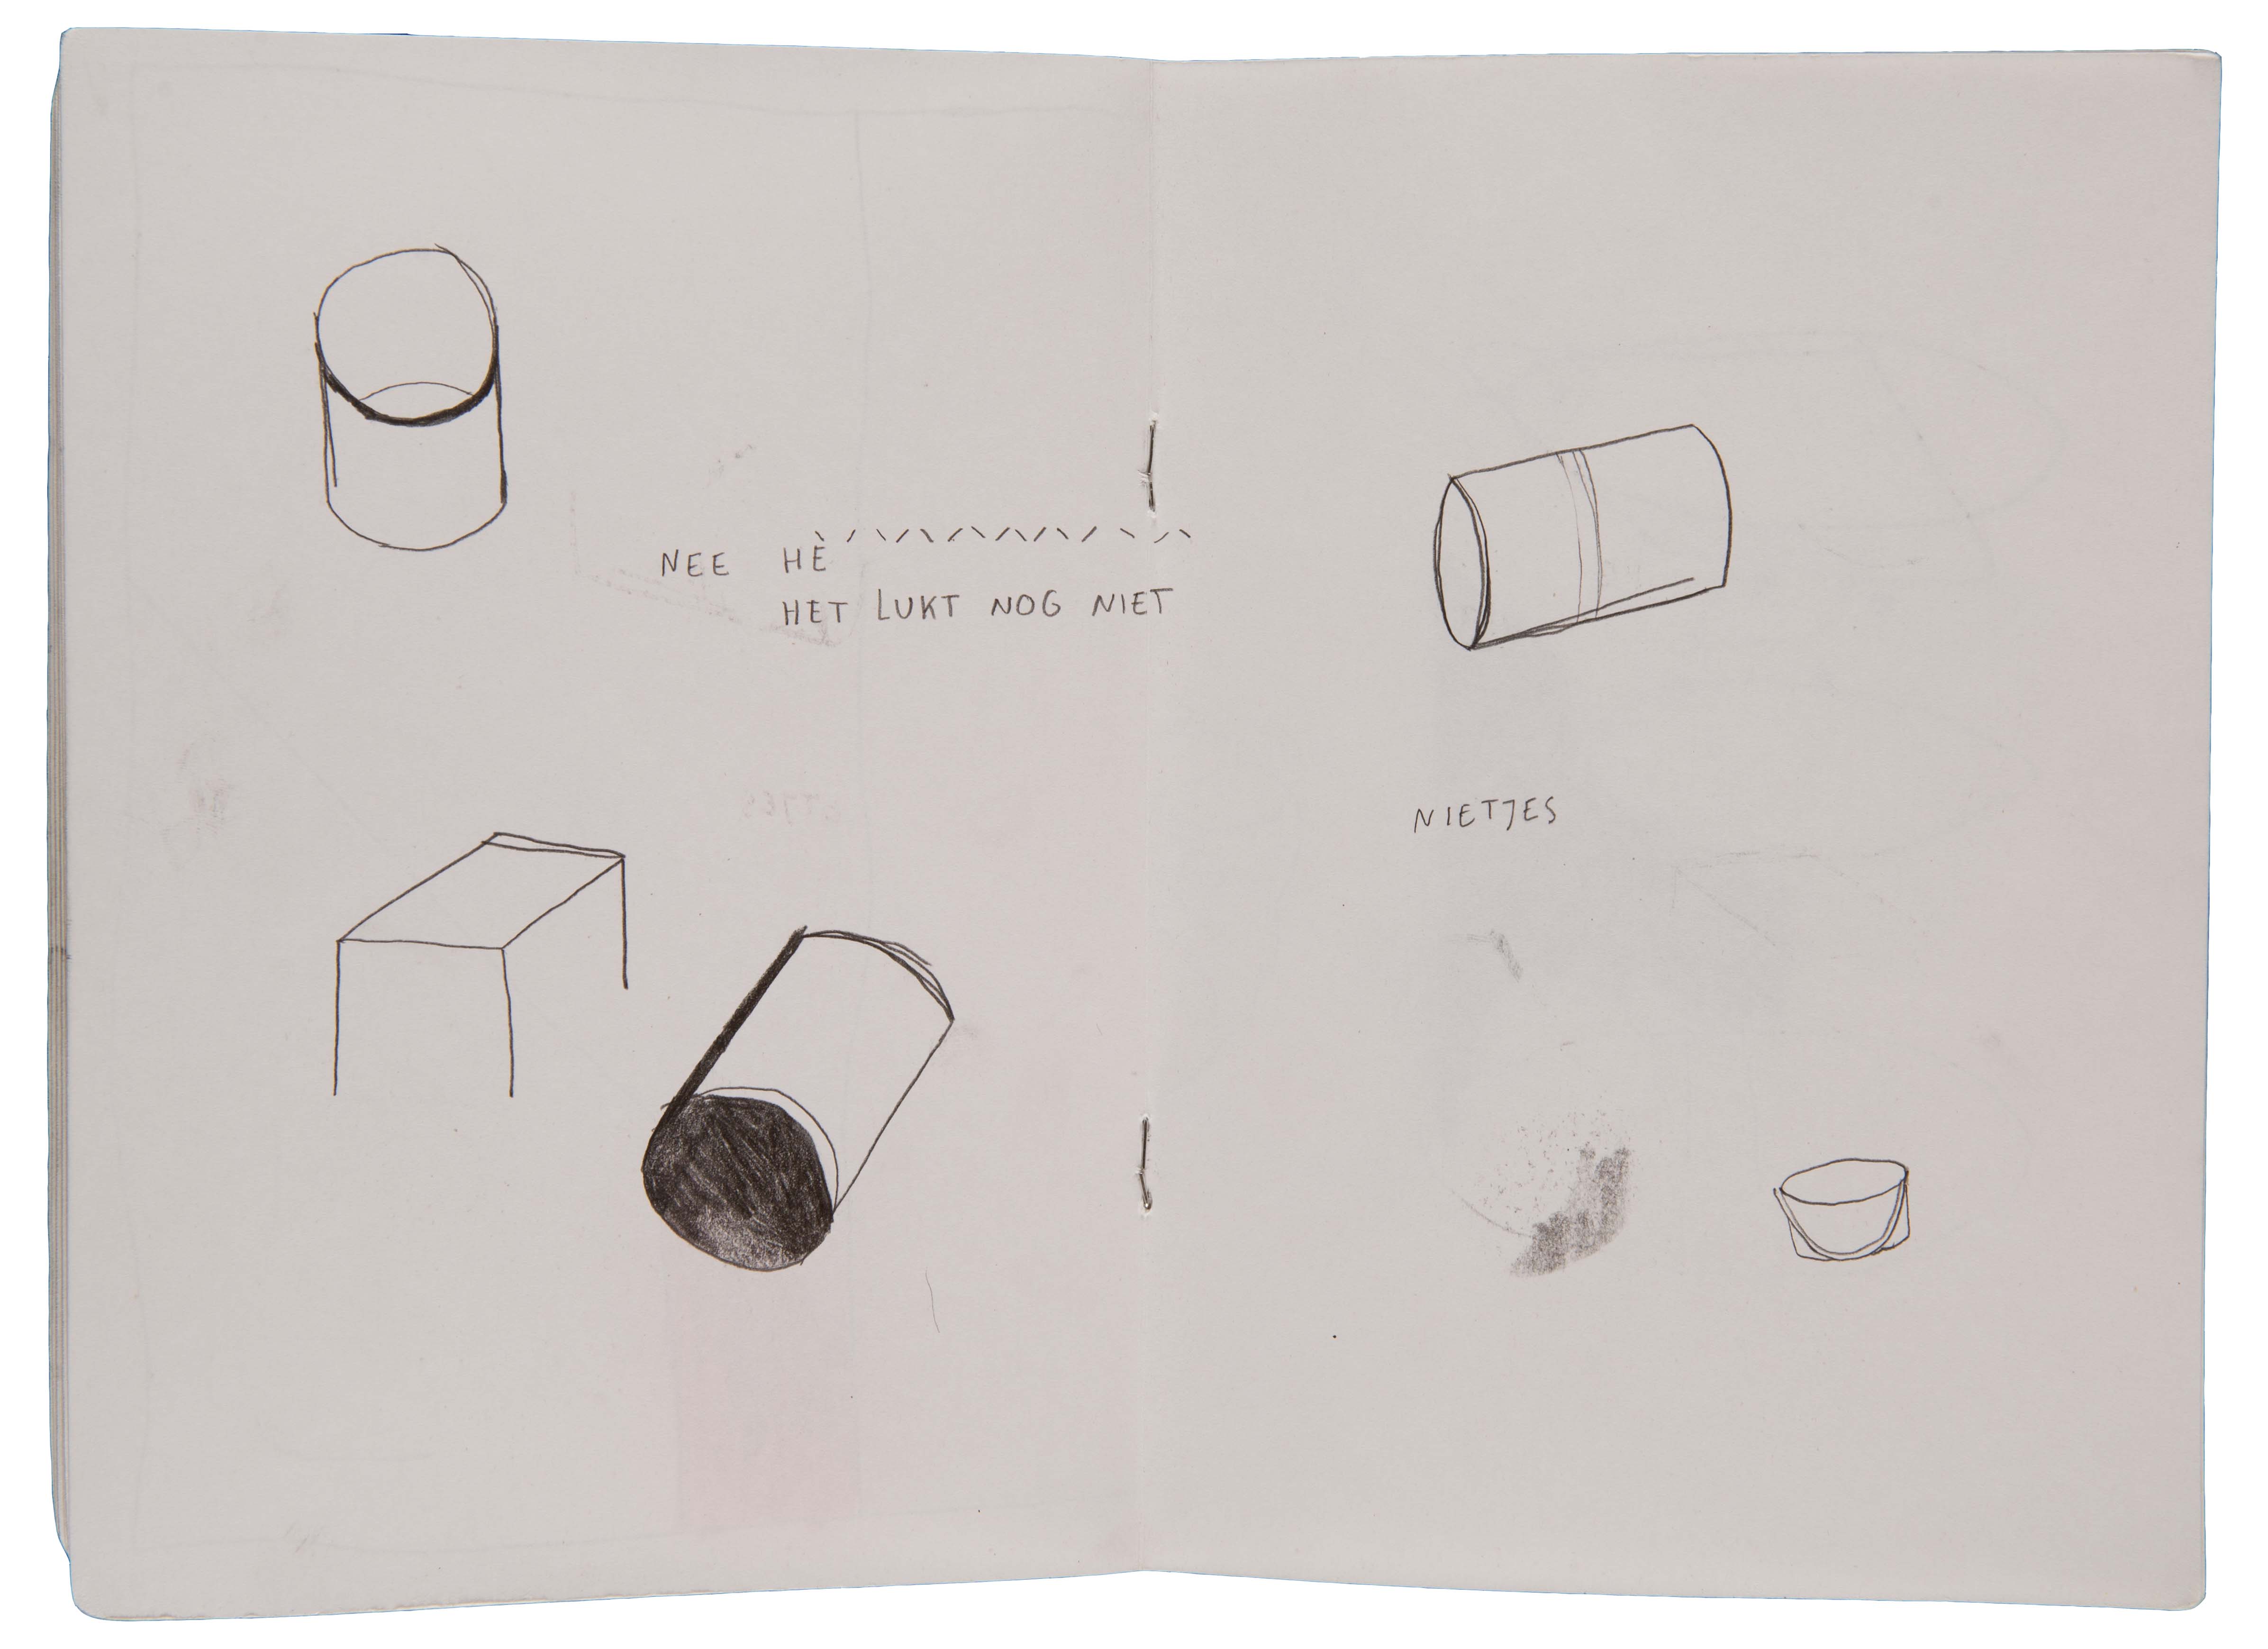 NEE HÈ
HET LUKT NOG NIET
NIETJES